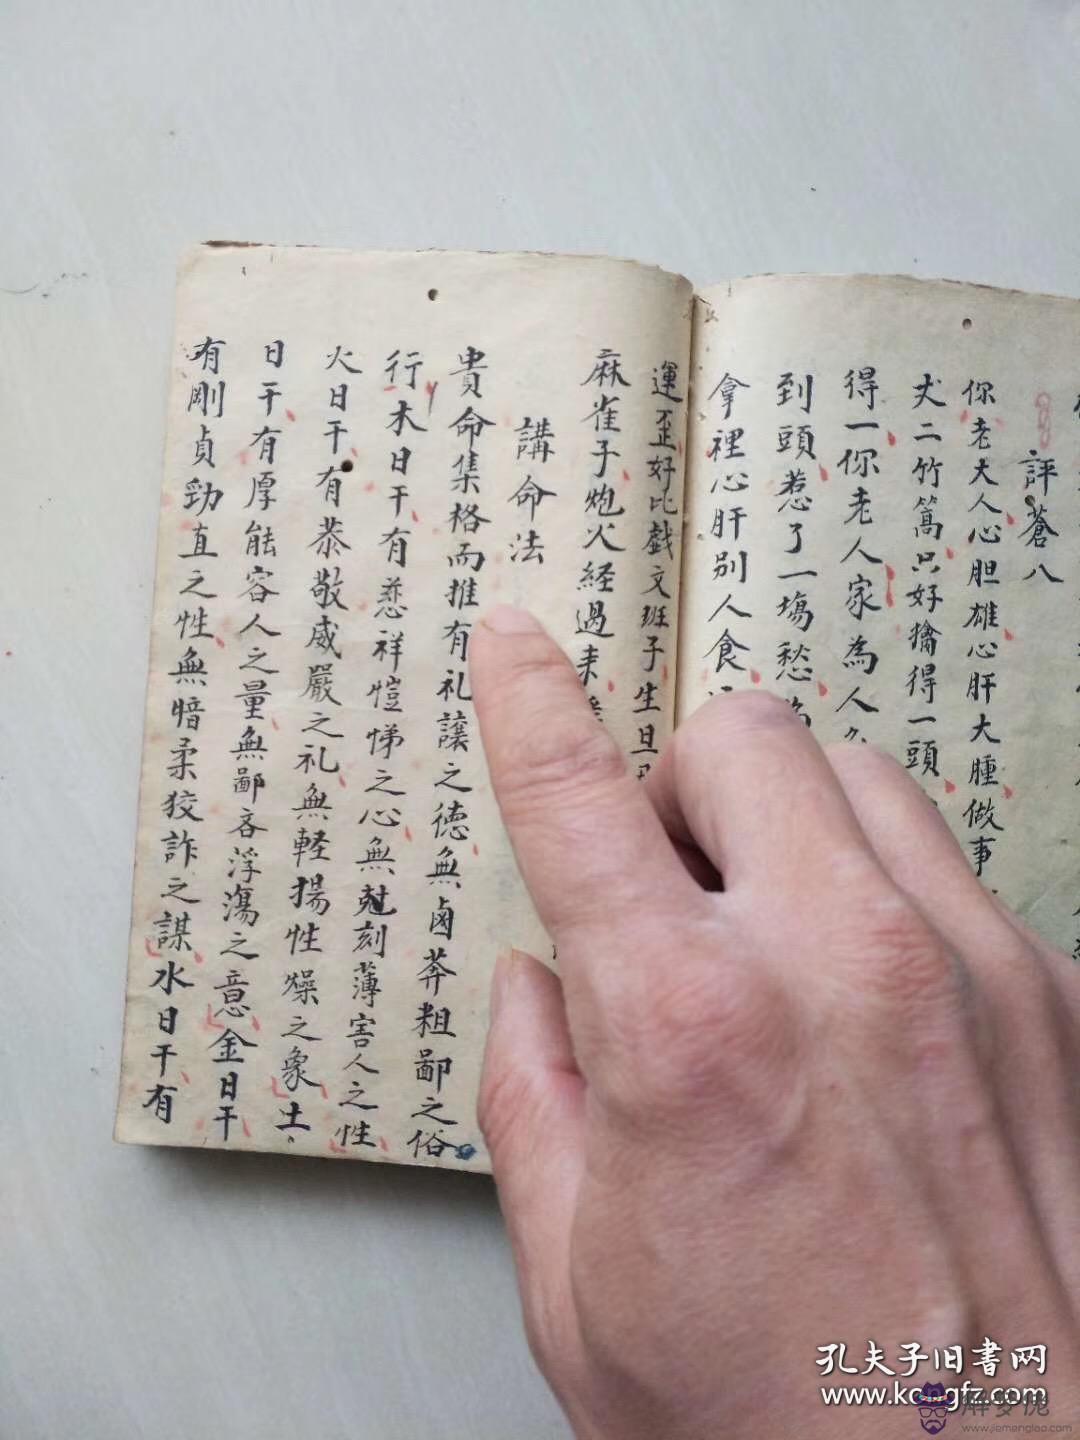 評蒼八
你老大人心胆雄心肝大腫做事
丈二竹篙只好擒得一頭
得一你老人家為人
到頭惹了一塲愁
拿裡心肝別人食
運歪好比戲文班子生旦
麻雀子炮火経過来
講命法
貴命集格而推有礼讓之徳無鹵莽粗鄙之俗
行木日干有慈祥愷悌之心無尅刻薄害人之性
火日干有恭敬威嚴之礼無軽揚性燥之象土
日干有厚能容人之量無鄙吝浮蕩之意金日干
有剛貞勁直之性無暗柔狡詐之謀水日干有
孔夫子旧書网
www.kongfz.com
解梦佬
www.jiemenglao.com